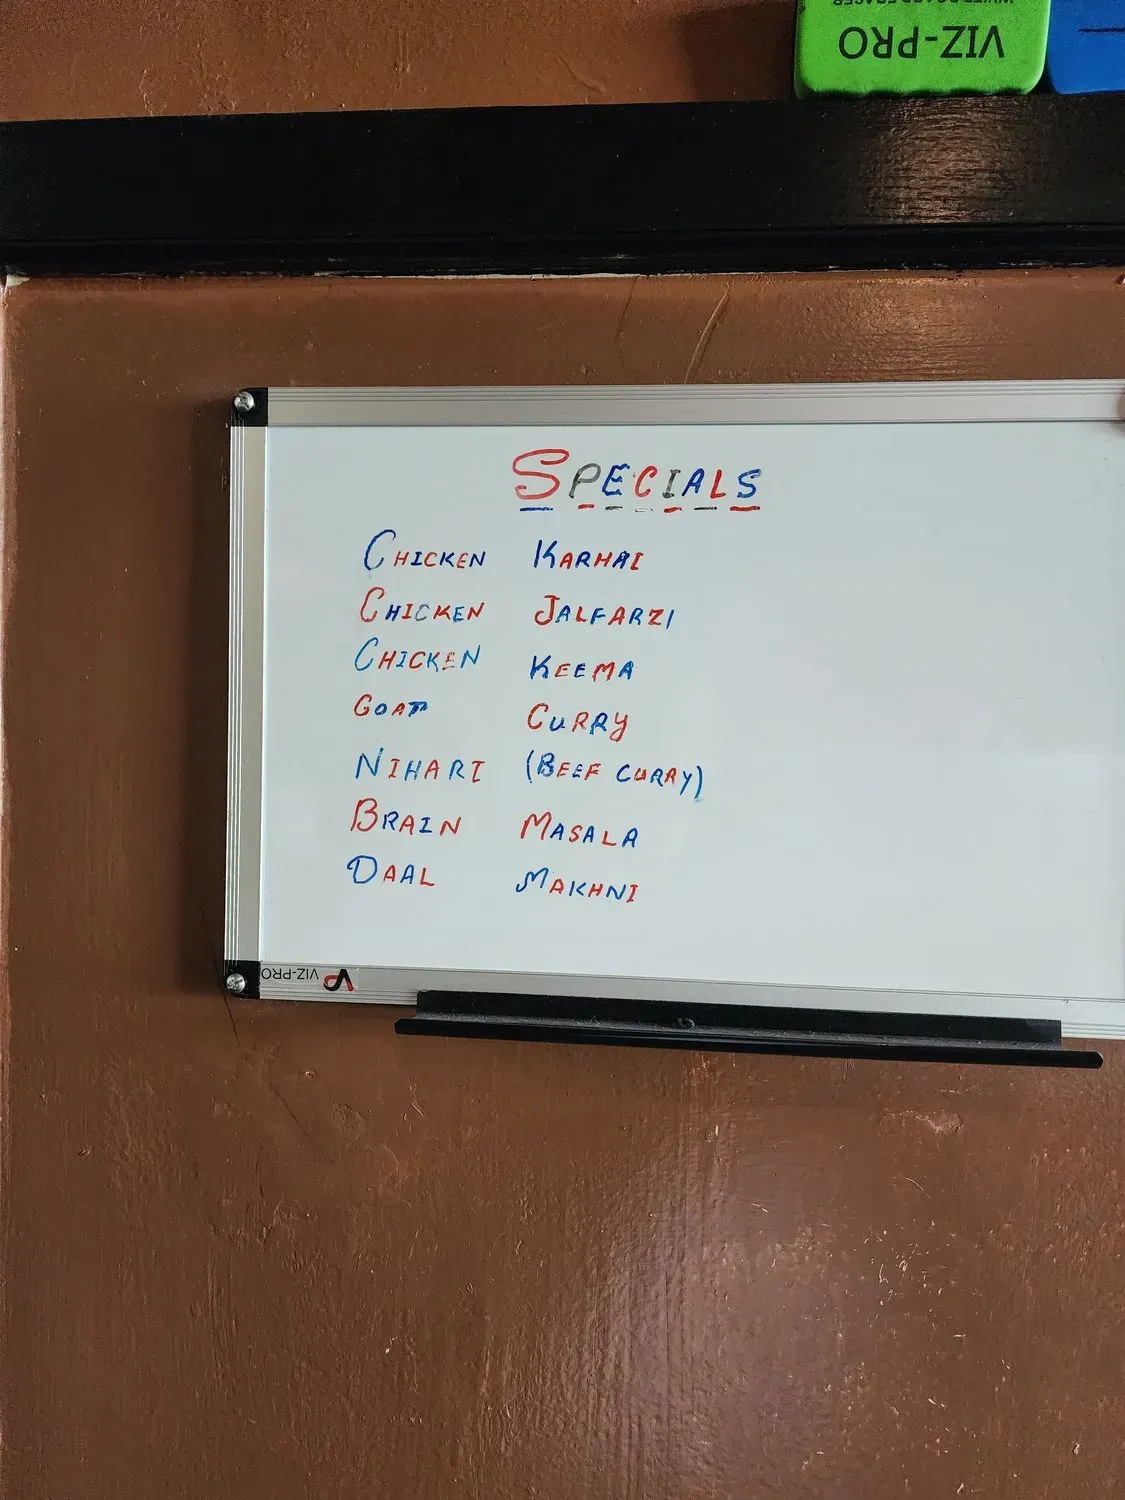 VIZ-PRO
SPECIALS
CHICKEN KARHAI
CHICKEN JALFARZI
CHICKEN KEEMA
GOAT CURRY
NIHARI (BEEF CURRY)
BRAIN MASALA
DAAL MAKHNI
VIZ-PRO